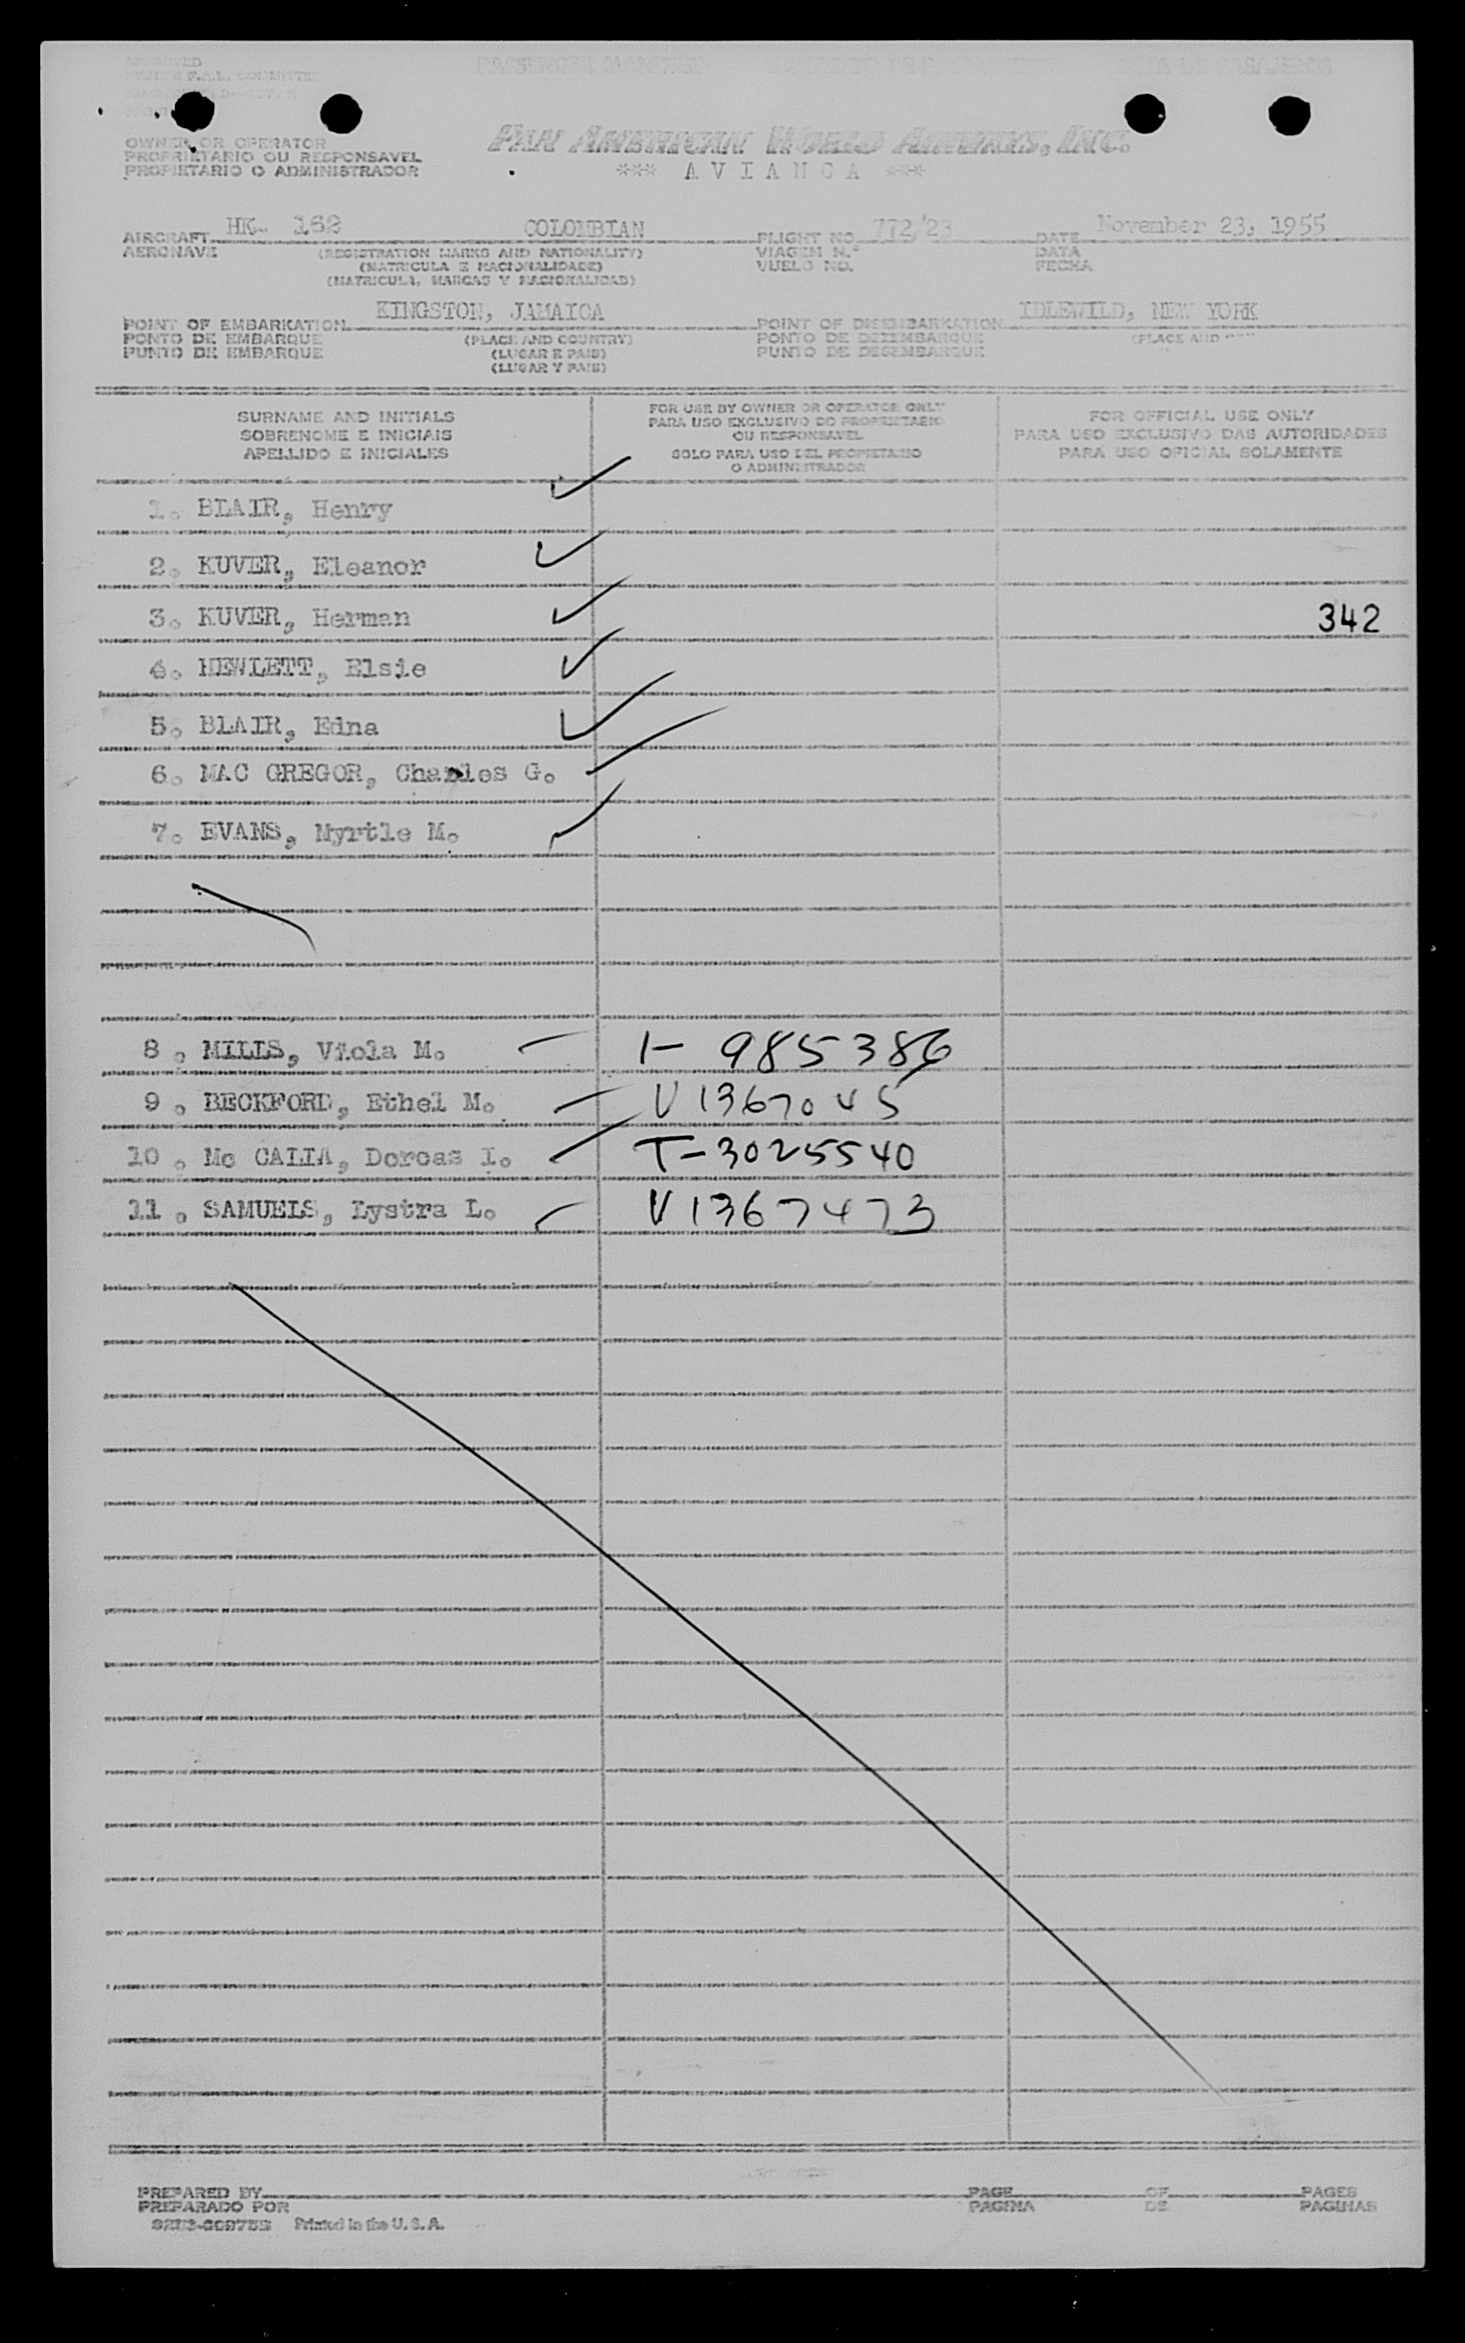 OWNER OR OPERATOR
PROPRIETARIO OU RESPONSAVEL
PROPIETARIO O ADMINISTRADOR
PAN AMERICAN WORLD AIRWAYS, INC.
*** AVIANCA ***
AIRCRAFT HK- 162 COLOMBIAN FLIGHT NO. 772/23 DATE November 23, 1955
AERONAVE (REGISTRATION MARKS AND NATIONALITY) VIAGEM N.º DATA
(MATRICULA E NACIONALIDADE) VUELO NO. FECHA
(MATRICULA, MARCAS Y NACIONALIDAD)
POINT OF EMBARKATION KINGSTON, JAMAICA POINT OF DISEMBARKATION IDLEWILD, NEW YORK
PONTO DE EMBARQUE (PLACE AND COUNTRY) PONTO DE DEZEMBARQUE (PLACE AND
PUNTO DE EMBARQUE (LUGAR E PAIS) PUNTO DE DESEMBARQUE
(LUGAR Y PAIS)
SURNAME AND INITIALS
SOBRENOME E INICIAIS
APELLIDO E INICIALES
FOR USE BY OWNER OR OPERATOR ONLY
PARA USO EXCLUSIVO DO PROPRIETARIO
OU RESPONSAVEL
SOLO PARA USO DEL PROPIETARIO
O ADMINISTRADOR
FOR OFFICIAL USE ONLY
PARA USO EXCLUSIVO DAS AUTORIDADES
PARA USO OFICIAL SOLAMENTE
1. BLAIR, Henry
2. KUVER, Eleanor
3. KUVER, Herman 342
4. HEWLETT, Elsie
5. BLAIR, Edna
6. MAC GREGOR, Charles G.
7. EVANS, Myrtle M.
8. MILLS, Viola M. I-985386
9. BECKFORD, Ethel M. V1367045
10. Mc CALLA, Dorcas I. T-3025540
11. SAMUELS, Lystra L. V1367473
PREPARED BY PAGE OF PAGES
PREPARADO POR PAGINA DE PAGINAS
Printed in the U. S. A.